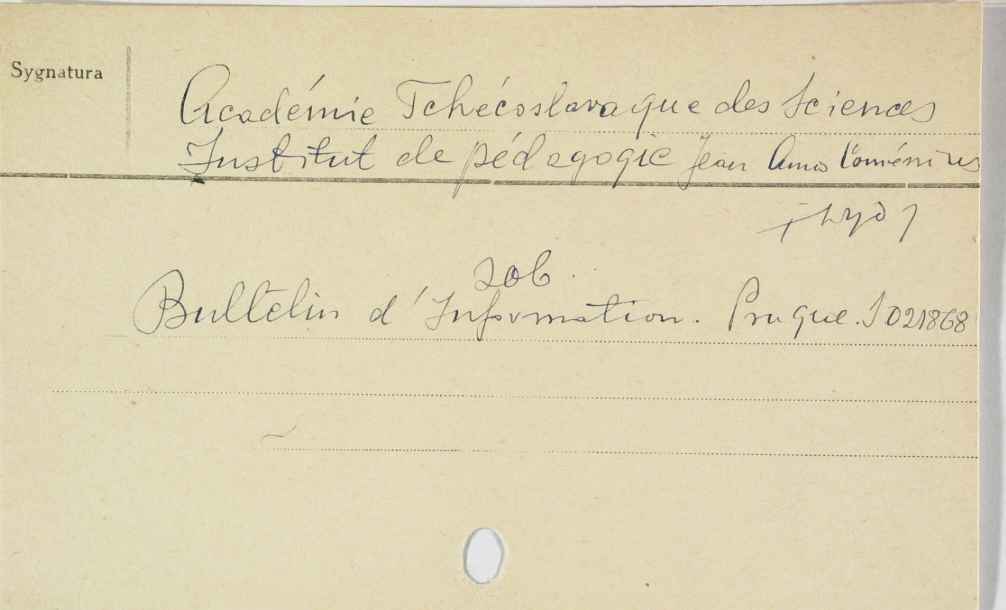 Sygnatura
Académie Tchécoslovaque des Sciences
Institut de pédagogie Jean Amos Coménius
zob.
Bulletin d'Information. Prague. J 021868